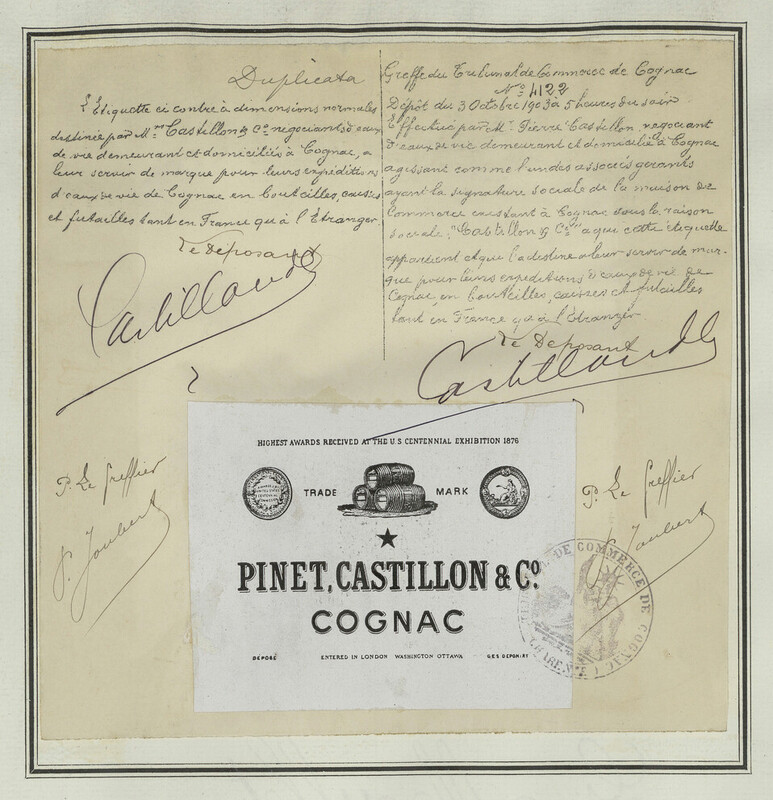 Duplicata
L'Etiquette ci contre à dimensions normales
destinée par Mrs Castillon & Co négociants d'eaux
de vie demeurant et domiciliés à Cognac, a
leur servir de marque pour leurs expéditions
d'eaux de vie de Cognac en bouteilles, caisses
et futailles tant en France qu'à l'Etranger
Le déposant
Castillon & Co
Greffe du Tribunal de Commerce de Cognac
No 4122
Dépôt du 3 Octobre 1903 à 5 heures du soir
Effectué par Mr Pierre Castillon, négociant
d'eaux de vie demeurant et domicilié à Cognac
agissant comme l'un des associés gérants
ayant la signature sociale de la maison de
Commerce existant à Cognac sous la raison
sociale "Castillon & Co" a qui cette étiquette
appartient et qui l'a destine a leur servir de mar-
que pour leurs expéditions d'eaux de vie de
Cognac, en bouteilles, caisses et futailles
tant en France qu'à l'Etranger.
Le Déposant
Castillon & Co
P. Le Greffier
P. Joubert
HIGHEST AWARDS RECEIVED AT THE U.S CENTENNIAL EXHIBITION 1876
TRADE MARK
PINET, CASTILLON & Co.
COGNAC
DÉPOSÉ ENTERED IN LONDON WASHINGTON OTTAWA
P. Le Greffier
P. Joubert
DE COMMERCE DE COGNAC